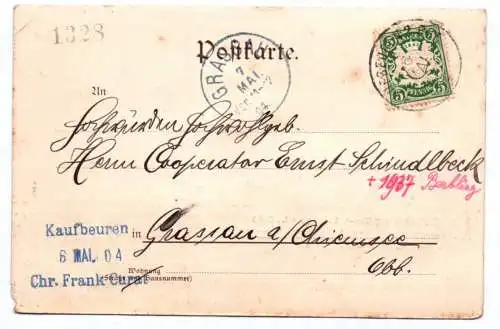 1328
Postkarte.
GRASSAU
7
MAI.
04
5 5
PFENNIG
An
Hochwürden Hochwohlgeb.
Herrn Cooperator Ernst Schindlbeck
+ 1937 Berbling
Kaufbeuren
in Grassau a/Chiemsee
6 MAI. 04
Obb.
Chr. Frank Curat
Wohnung
(Straße und Hausnummer)